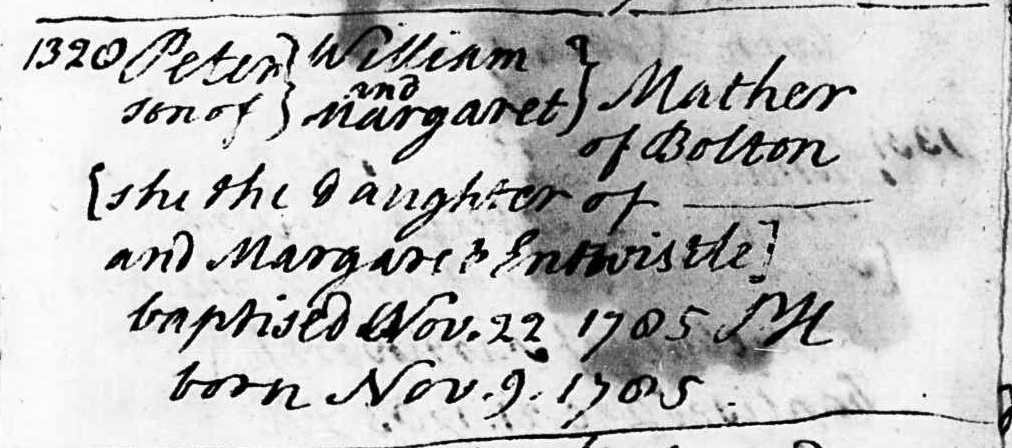 1328 Peter } William } Mather
son of } and Margaret } of Bolton
[she the Daughter of ———
and Margaret Entwistle]
baptised Nov. 22 1785 PH
born Nov. 9. 1785.